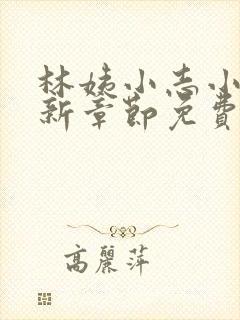 林姨小志小
新章節免費
高麗萍